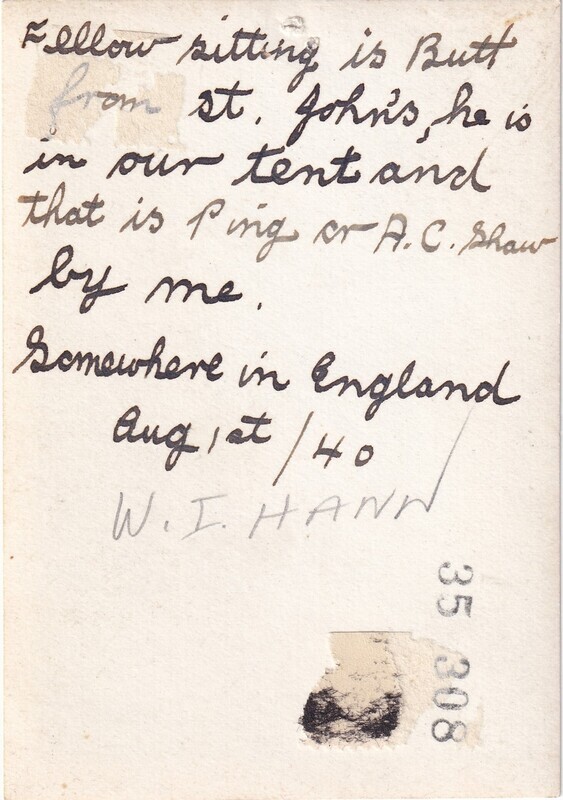 Fellow sitting is Butt
from St. John's, he is
in our tent and
that is Ping or A.C. Shaw
by me.
Somewhere in England
Aug 1st /40
W. I. HANN
35 308